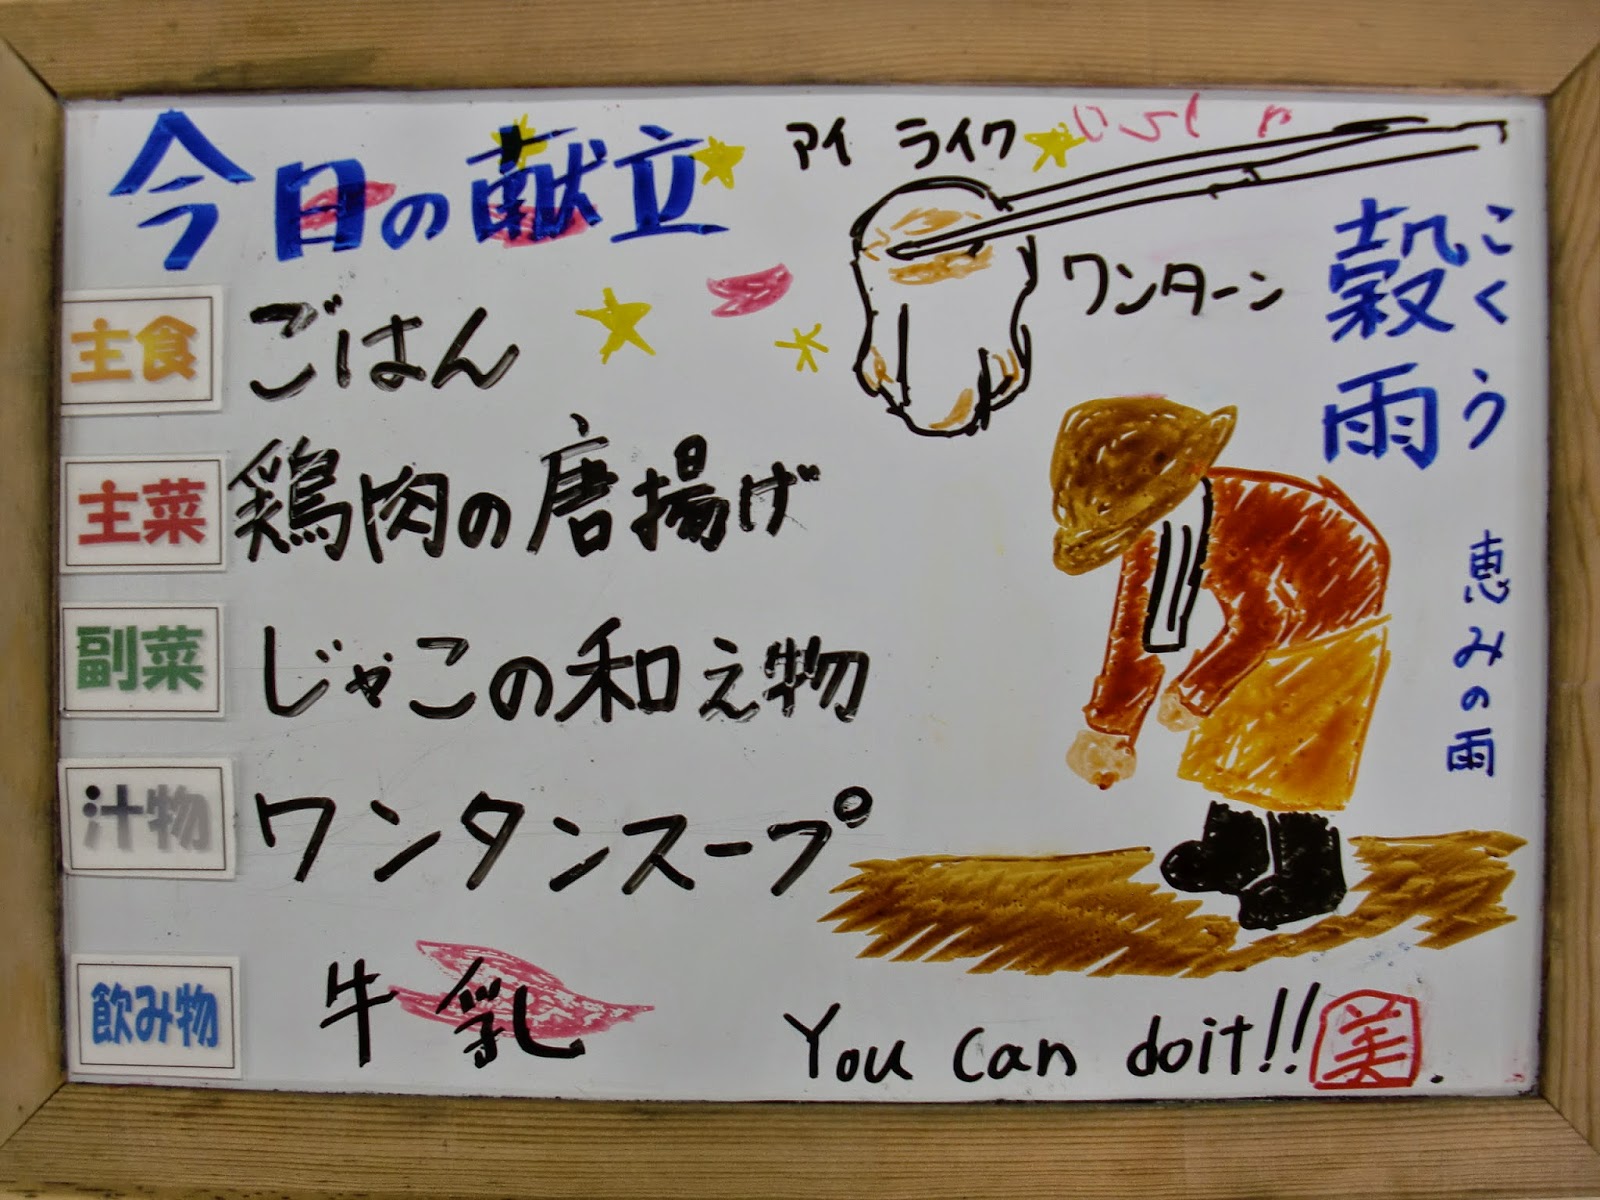 今日の献立
アイ ライク
ワンターン
穀雨
こくう
恵みの雨
主食 ごはん
主菜 鶏肉の唐揚げ
副菜 じゃこの和え物
汁物 ワンタンスープ
飲み物 牛乳
You can doit!! 美.